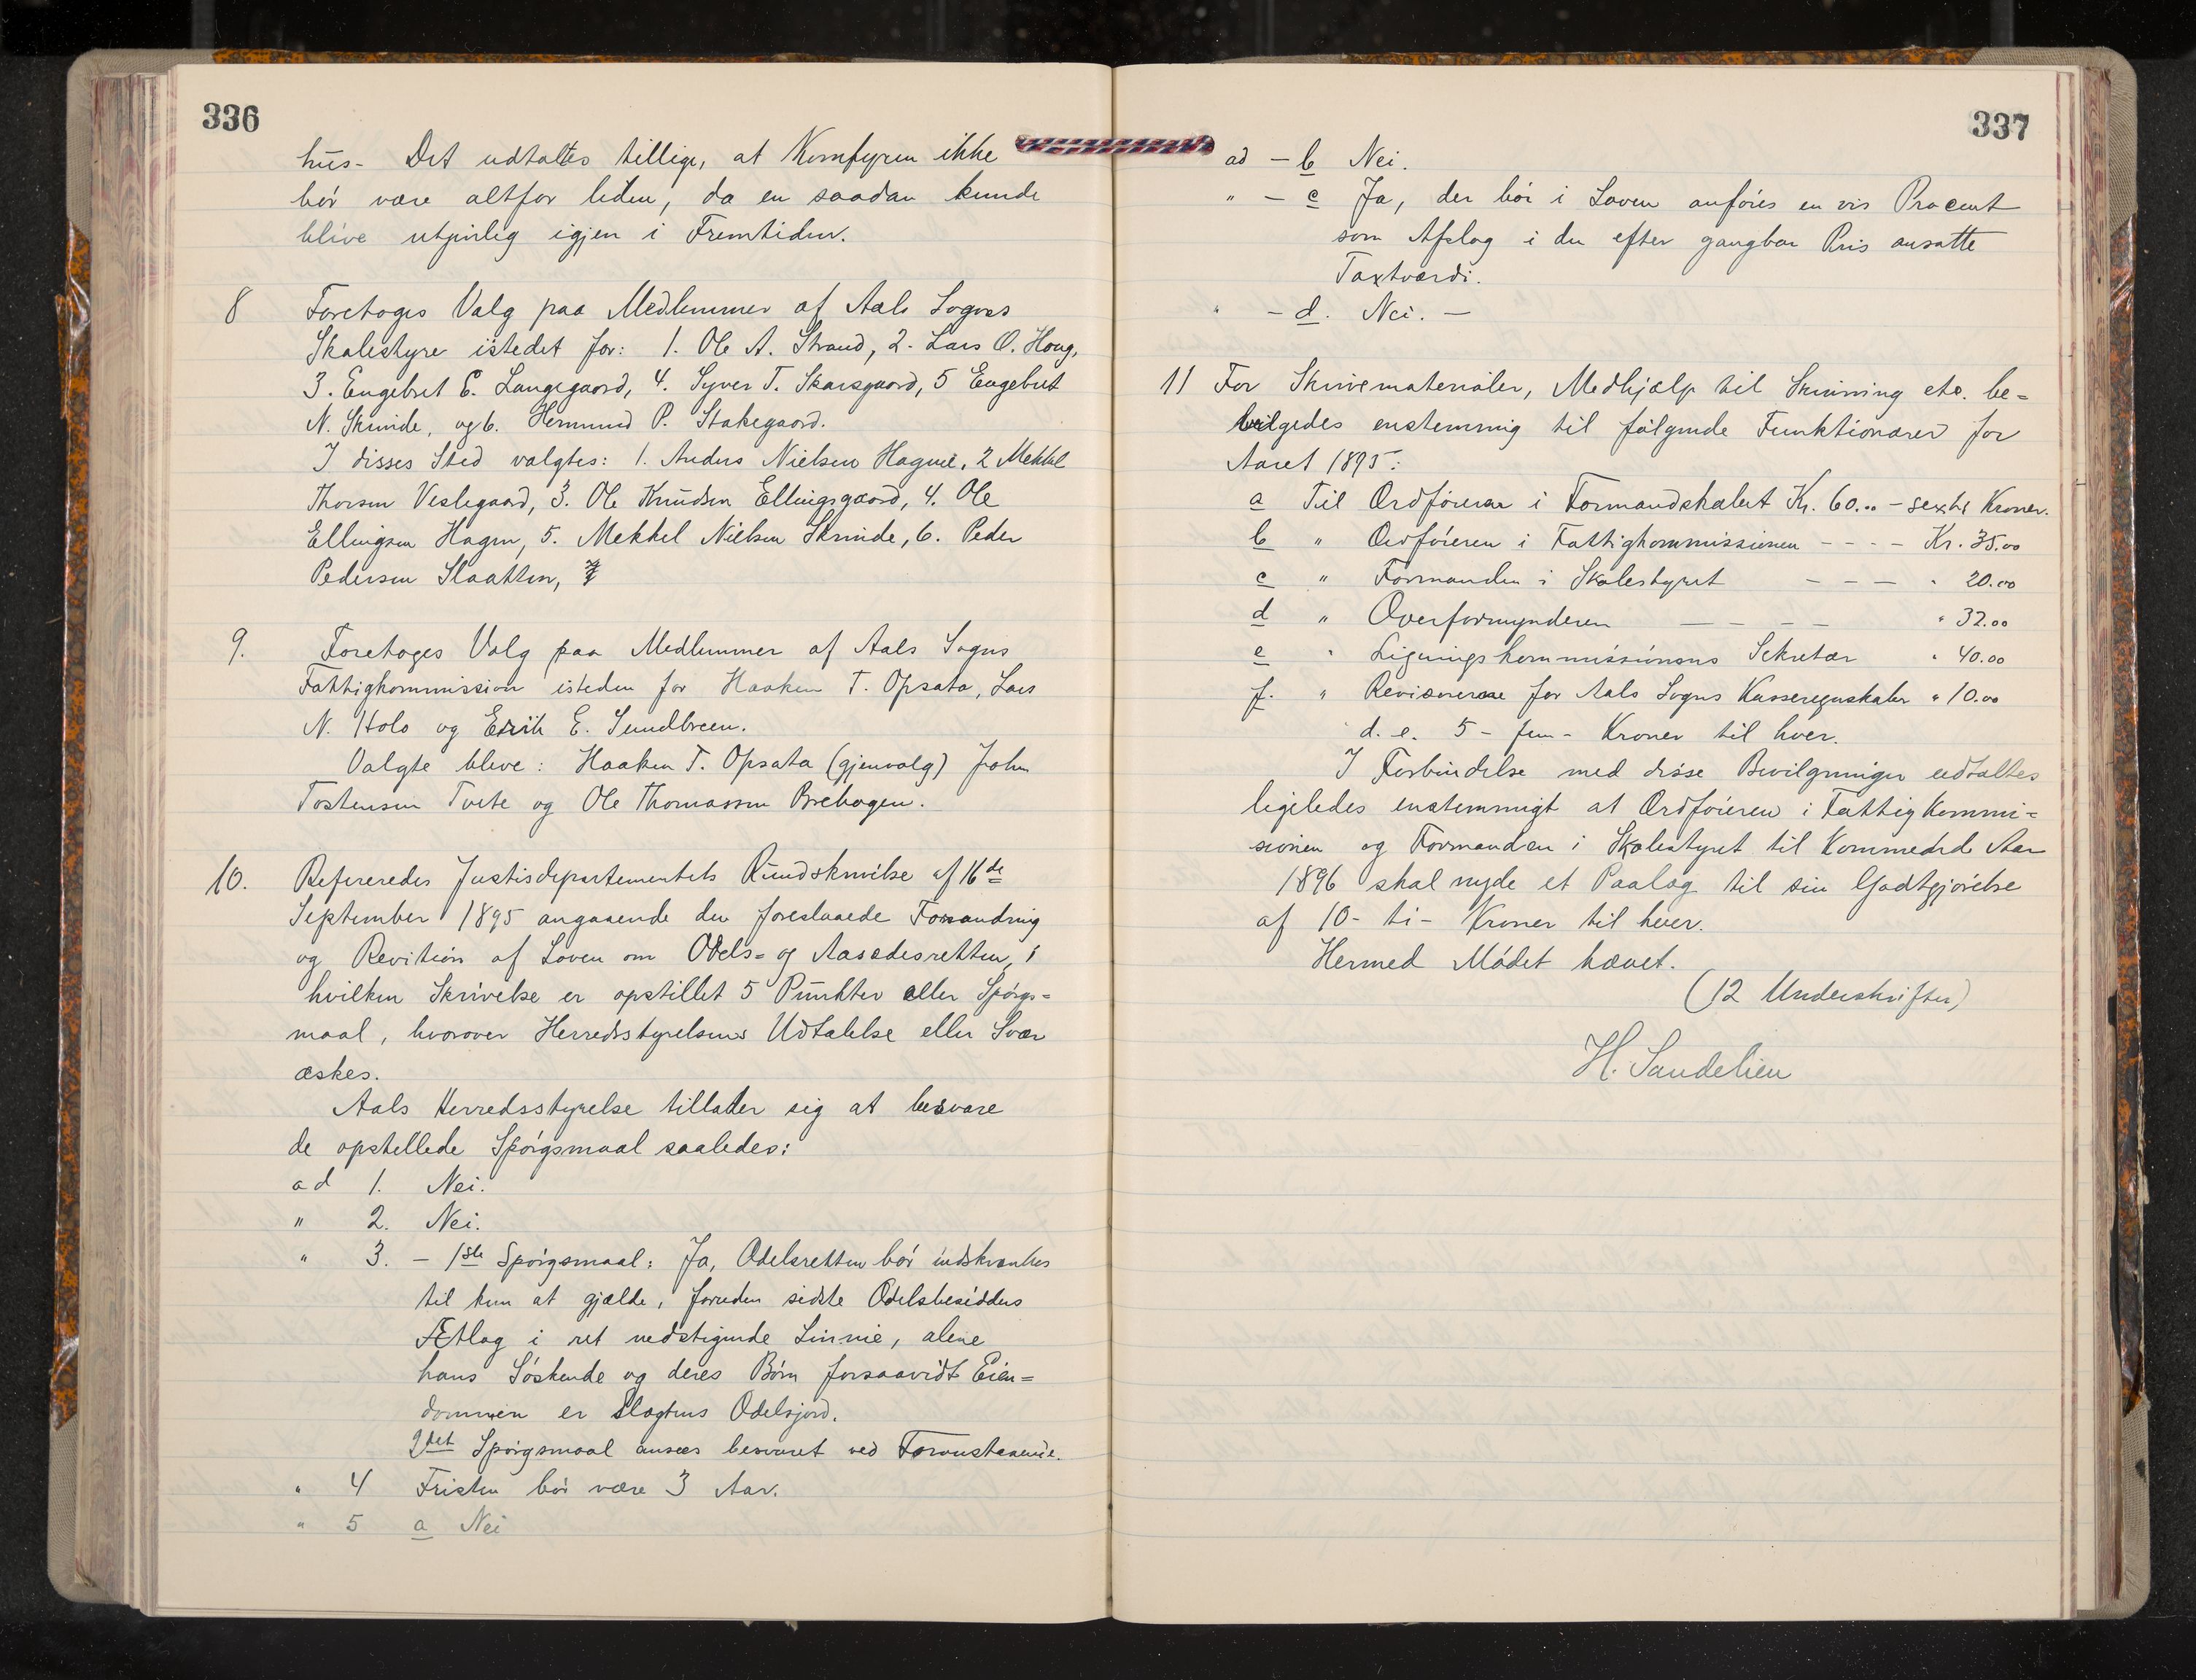 336
hus- Det udtaltes tillige, at Komfyren ikke
bør være altfor liden, da en saadan kunde
blive utjenlig igjen i Fremtiden.
8 Foretoges Valg paa Medlemmer af Aals Sogns
Skolestyre istedet for: 1. Ole A. Strand, 2. Lars O. Houg,
3. Engebret E. Langegaard, 4. Syver T. Skarsgaard, 5 Engebret
N. Skrinde, og 6. Hermund P. Stakegaard.
I disses Sted valgtes: 1. Anders Nielsen Hagene, 2 Mekkel
Thorsen Veslegaard, 3. Ole Knudsen Ellingsgaard, 4. Ole
Ellingsen Hagen, 5. Mekkel Nielsen Skrinde, 6. Peder
Pedersen Slaatten,
9. Foretoges Valg paa Medlemmer af Aals Sogns
Fattigkommission isteden for Haaken T. Opsata, Lars
N. Holo og Erik E. Sundbreen.
Valgte bleve: Haaken T. Opsata (gjenvalg) John
Tostensen Tvete og Ole Thomassen Brehagen.
10. Refereredes Justisdepartementets Rundskrivelse af 16de
September 1895 angaaende den foreslaaede Forandring
og Revition af Loven om Odels= og Aasædesretten, i
hvilken Skrivelse er opstillet 5 Punkter eller Spørgs=
maal, hvorover Herredsstyrelsens Udtalelse eller Svar
æskes.
Aals Herredsstyrelse tillader sig at besvare
de opstillede Spørgsmaal saaledes:
ad 1. Nei.
" 2. Nei.
" 3. - 1ste Spørgsmaal: Ja, Odelsretten bør indskrænkes
til kun at gjælde, foruden sidste Odelsbesidders
Ætlag i ret nedstigende Linnie, alene
hans Søskende og deres Børn forsaavidt Eien=
dommen er Slægtens Odelsjord.
2det Spørgsmaal ansees besvaret ved Foranstaaende.
" 4 Fristen bør være 3 Aar.
" 5 a Nei
337
ad - b Nei.
" - c Ja, der bør i Loven anføres en vis Procent
som Afslag i den efter gangbar Pris ansatte
Taxtværdi.
" - d. Nei. -
11 For Skrivematerialer, Medhjælp til Skrivning etc. be=
vilgedes enstemmig til følgende Funktionærer for
Aaret 1895:
a Til Ordføreren i Formandskabet Kr. 60.00 - sexti Kroner.
b " Ordføreren i Fattigkommissionen - - - - Kr. 35.00
c " Formanden i Skolestyret - - - " 20.00
d " Overformynderen - - - - " 32.00
e " Ligningskommissionens Sekretær " 40.00
f. " Revisorerne for Aals Sogns Kasseregnskaber " 10.00
d. e. 5 - fem - Kroner til hver.
I Forbindelse med disse Bevilgninger udtaltes
ligeledes enstemmigt at Ordføreren i Fattigkommi=
sionen og Formanden i Skolestyret til Kommende Aar
1896 skal nyde et Paalæg til sin Godtgjørelse
af 10- ti- Kroner til hver.
Hermed Mødet hævet.
(12 Underskrifter)
H. Sandelien